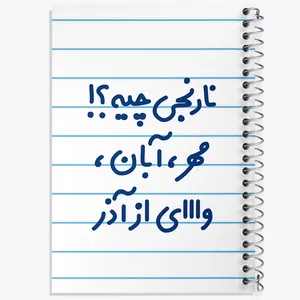 نارنجی چیه ؟!
مهر ، آبان ،
وااای از آذر